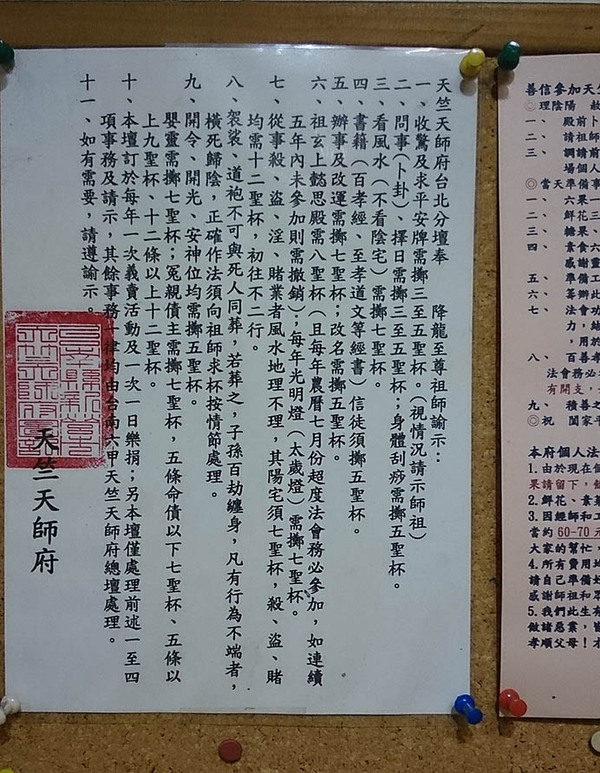 天竺天師府台北分壇奉　降龍至尊祖師諭示：
一、收驚及求平安牌需擲三至五聖杯。(視情況請示師祖)
二、問事(卜卦)、擇日需擲三至五聖杯；身體刮痧需擲五聖杯。
三、看風水(不看陰宅)需擲七聖杯。
四、書籍(百孝經、至孝道文等經書)信徒須擲五聖杯。
五、辦事及改運需擲七聖杯；改名需擲五聖杯。
六、祖玄上懿思殿需八聖杯(且每年農曆七月份超度法會務必參加，如連續
五年內未參加則需撤銷)；每年光明燈(太歲燈)需擲七聖杯。
七、從事殺、盜、淫、賭業者風水地理不理，其陽宅須七聖杯，殺、盜、賭
均需十二聖杯，初往不二行。
八、袈裟、道袍不可與死人同葬，若葬之，子孫百劫纏身，凡有行為不端者，
橫死歸陰，正確作法須向祖師求杯按情節處理。
九、開令、開光、安神位均需擲五聖杯。
嬰靈需擲七聖杯；冤親債主需擲七聖杯，五條命債以下七聖杯、五條以
上九聖杯、十二條以上十二聖杯。
十、本壇訂於每年一次義賣活動及一次一日樂捐；另本壇僅處理前述一至四
項事務及請示，其餘事務一律均由台南六甲天竺天師府總壇處理。
十一、如有需要，請遵諭示。
天竺天師府
善信參加天竺
◎理陰陽
一、殿前卜
二、請祖師
三、調請前
場個人
◎當天準備事
一、六果一
二、鮮花三
三、糖果、
四、素食六
感謝靈
五、準備工
六、
七、法會功
力，結
，用於
八、百善孝
法會務必
有開支，
九、積善之
◎祝　闔家平
本府個人法
1.由於現在個
果請留下，
2.鮮花、素
3.因經師和工
當約60-70元
大家的幫忙，
4.所有費用
請自己準備
感謝師祖和
5.我們此生有
做諸惡業，
孝順父母！